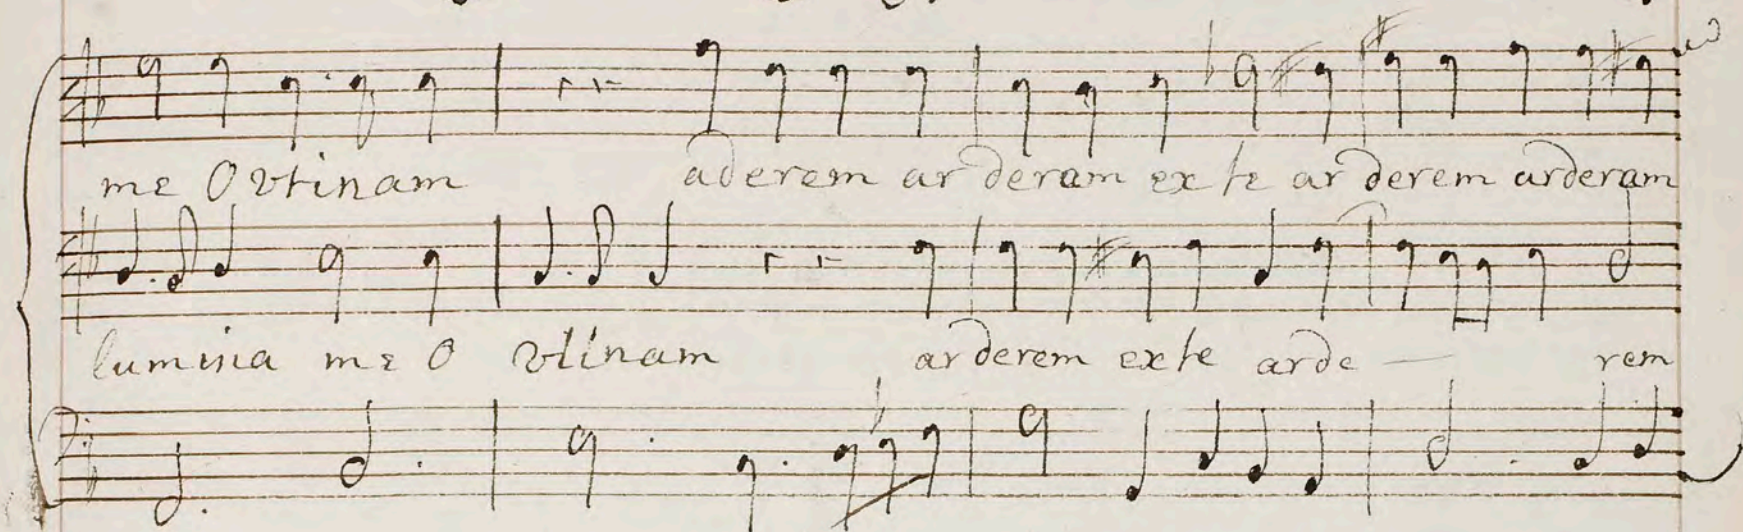 me O vtinam aderem arderam exte arderem arderam
lumina me O vtinam arderem exte arde — rem